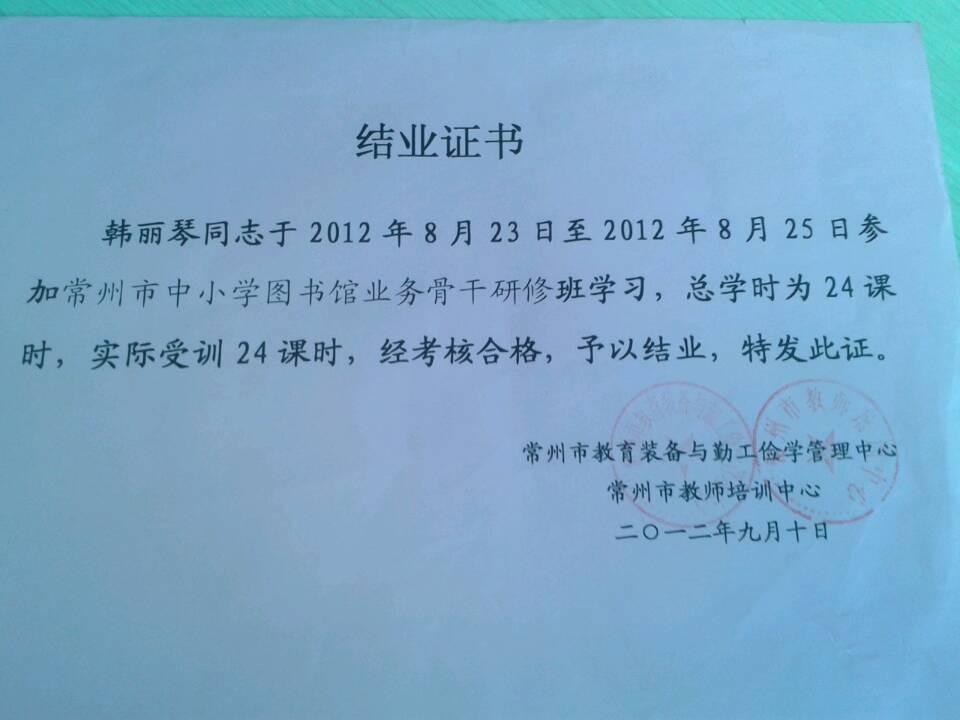 结业证书
韩丽琴同志于 2012 年 8 月 23 日至 2012 年 8 月 25 日参
加常州市中小学图书馆业务骨干研修班学习，总学时为 24 课
时，实际受训 24 课时，经考核合格，予以结业，特发此证。
常州市教育装备与勤工俭学管理中心
常州市教师培训中心
二〇一二年九月十日